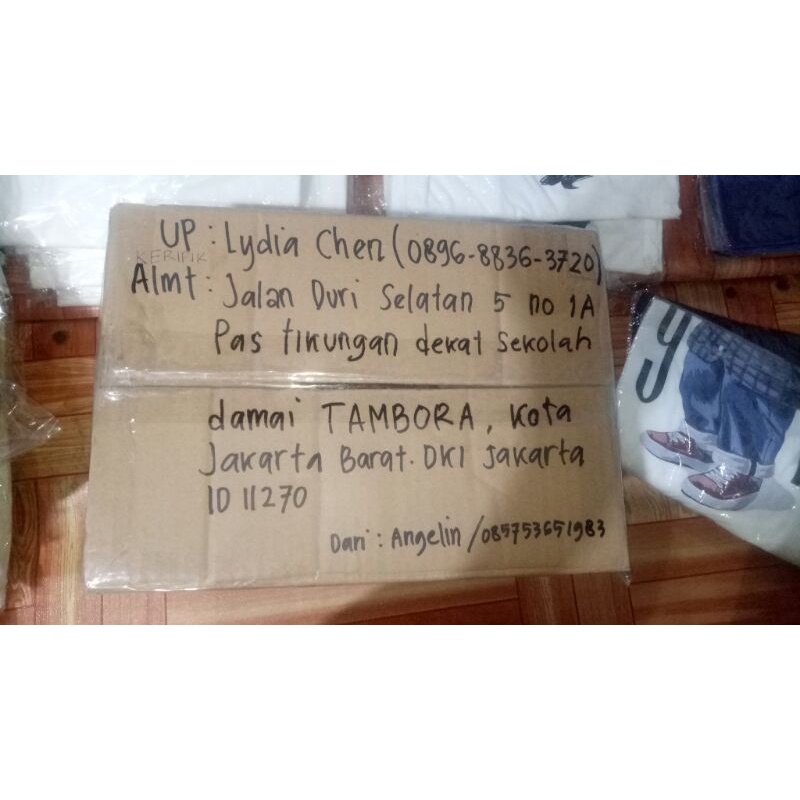 UP : Lydia Chen (0896-8836-3720)
KERIPIK
Almt : Jalan Duri Selatan 5 no 1A
Pas tikungan dekat sekolah
damai TAMBORA, Kota
Jakarta Barat. DKI Jakarta
ID 11270
Dari : Angelin / 085753651983
y